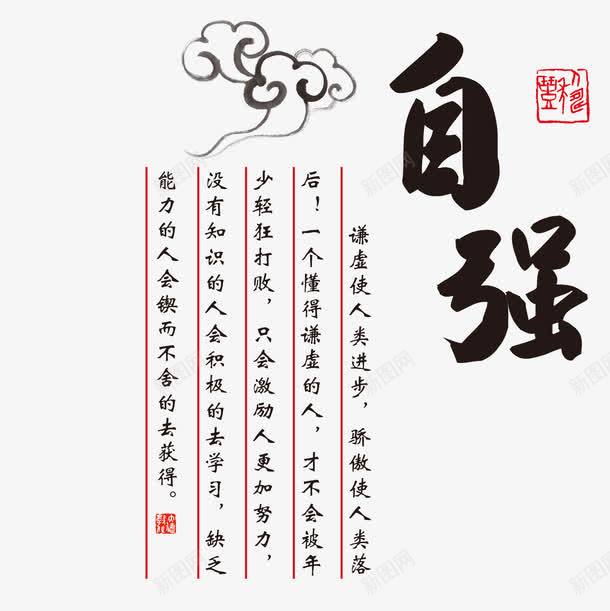 自强
谦虚使人类进步，骄傲使人类落
后！一个懂得谦虚的人，才不会被年
少轻狂打败，只会激励人更加努力，
没有知识的人会积极的去学习，缺乏
能力的人会锲而不舍的去获得。
新图网